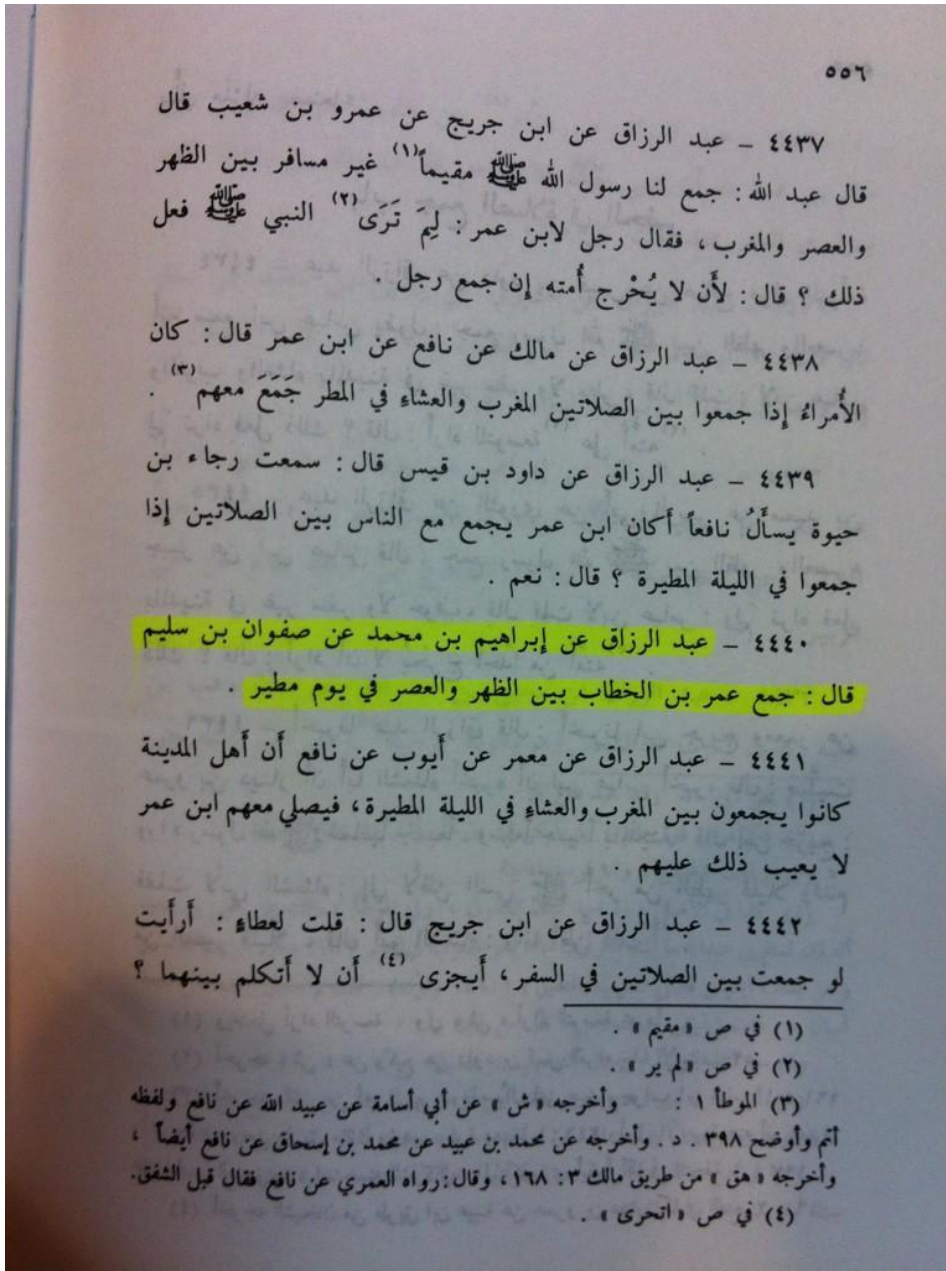 ٥٥٦
٤٤٣٧ – عبد الرزاق عن ابن جريج عن عمرو بن شعيب قال
قال عبد الله : جمع لنا رسول الله ﷺ مقيماً(١) غير مسافر بين الظهر
والعصر والمغرب ، فقال رجل لابن عمر : لِمَ تَرَى(٢) النبي ﷺ فعل
ذلك ؟ قال : لأَن لا يُحْرج أُمته إن جمع رجل .
٤٤٣٨ – عبد الرزاق عن مالك عن نافع عن ابن عمر قال : كان
الأُمراءُ إذا جمعوا بين الصلاتين المغرب والعشاءِ في المطر جَمَعَ معهم(٣) .
٤٤٣٩ – عبد الرزاق عن داود بن قيس قال : سمعت رجاء بن
حيوة يسأَلُ نافعاً أكان ابن عمر يجمع مع الناس بين الصلاتين إذا
جمعوا في الليلة المطيرة ؟ قال : نعم .
٤٤٤٠ – عبد الرزاق عن إبراهيم بن محمد عن صفوان بن سليم
قال : جمع عمر بن الخطاب بين الظهر والعصر في يوم مطير .
٤٤٤١ – عبد الرزاق عن معمر عن أَيوب عن نافع أَن أَهل المدينة
كانوا يجمعون بين المغرب والعشاءِ في الليلة المطيرة ، فيصلي معهم ابن عمر
لا يعيب ذلك عليهم .
٤٤٤٢ – عبد الرزاق عن ابن جريج قال : قلت لعطاءٍ : أَرأَيت
لو جمعت بين الصلاتين في السفر ، أَيجزى(٤) أَن لا أَتكلم بينهما ؟
(١) في ص « مقيم » .
(٢) في ص « لم ير » .
(٣) الموطأ ١ : وأخرجه « ش » عن أبي أسامة عن عبيد الله عن نافع ولفظه
أتم وأوضح ٣٩٨ . د . وأخرجه عن محمد بن عبيد عن محمد بن إسحاق عن نافع أيضاً ،
وأخرجه « هق » من طريق مالك ٣ : ١٦٨ ، وقال : رواه العمري عن نافع فقال قبل الشفق.
(٤) في ص « اتحرى » .